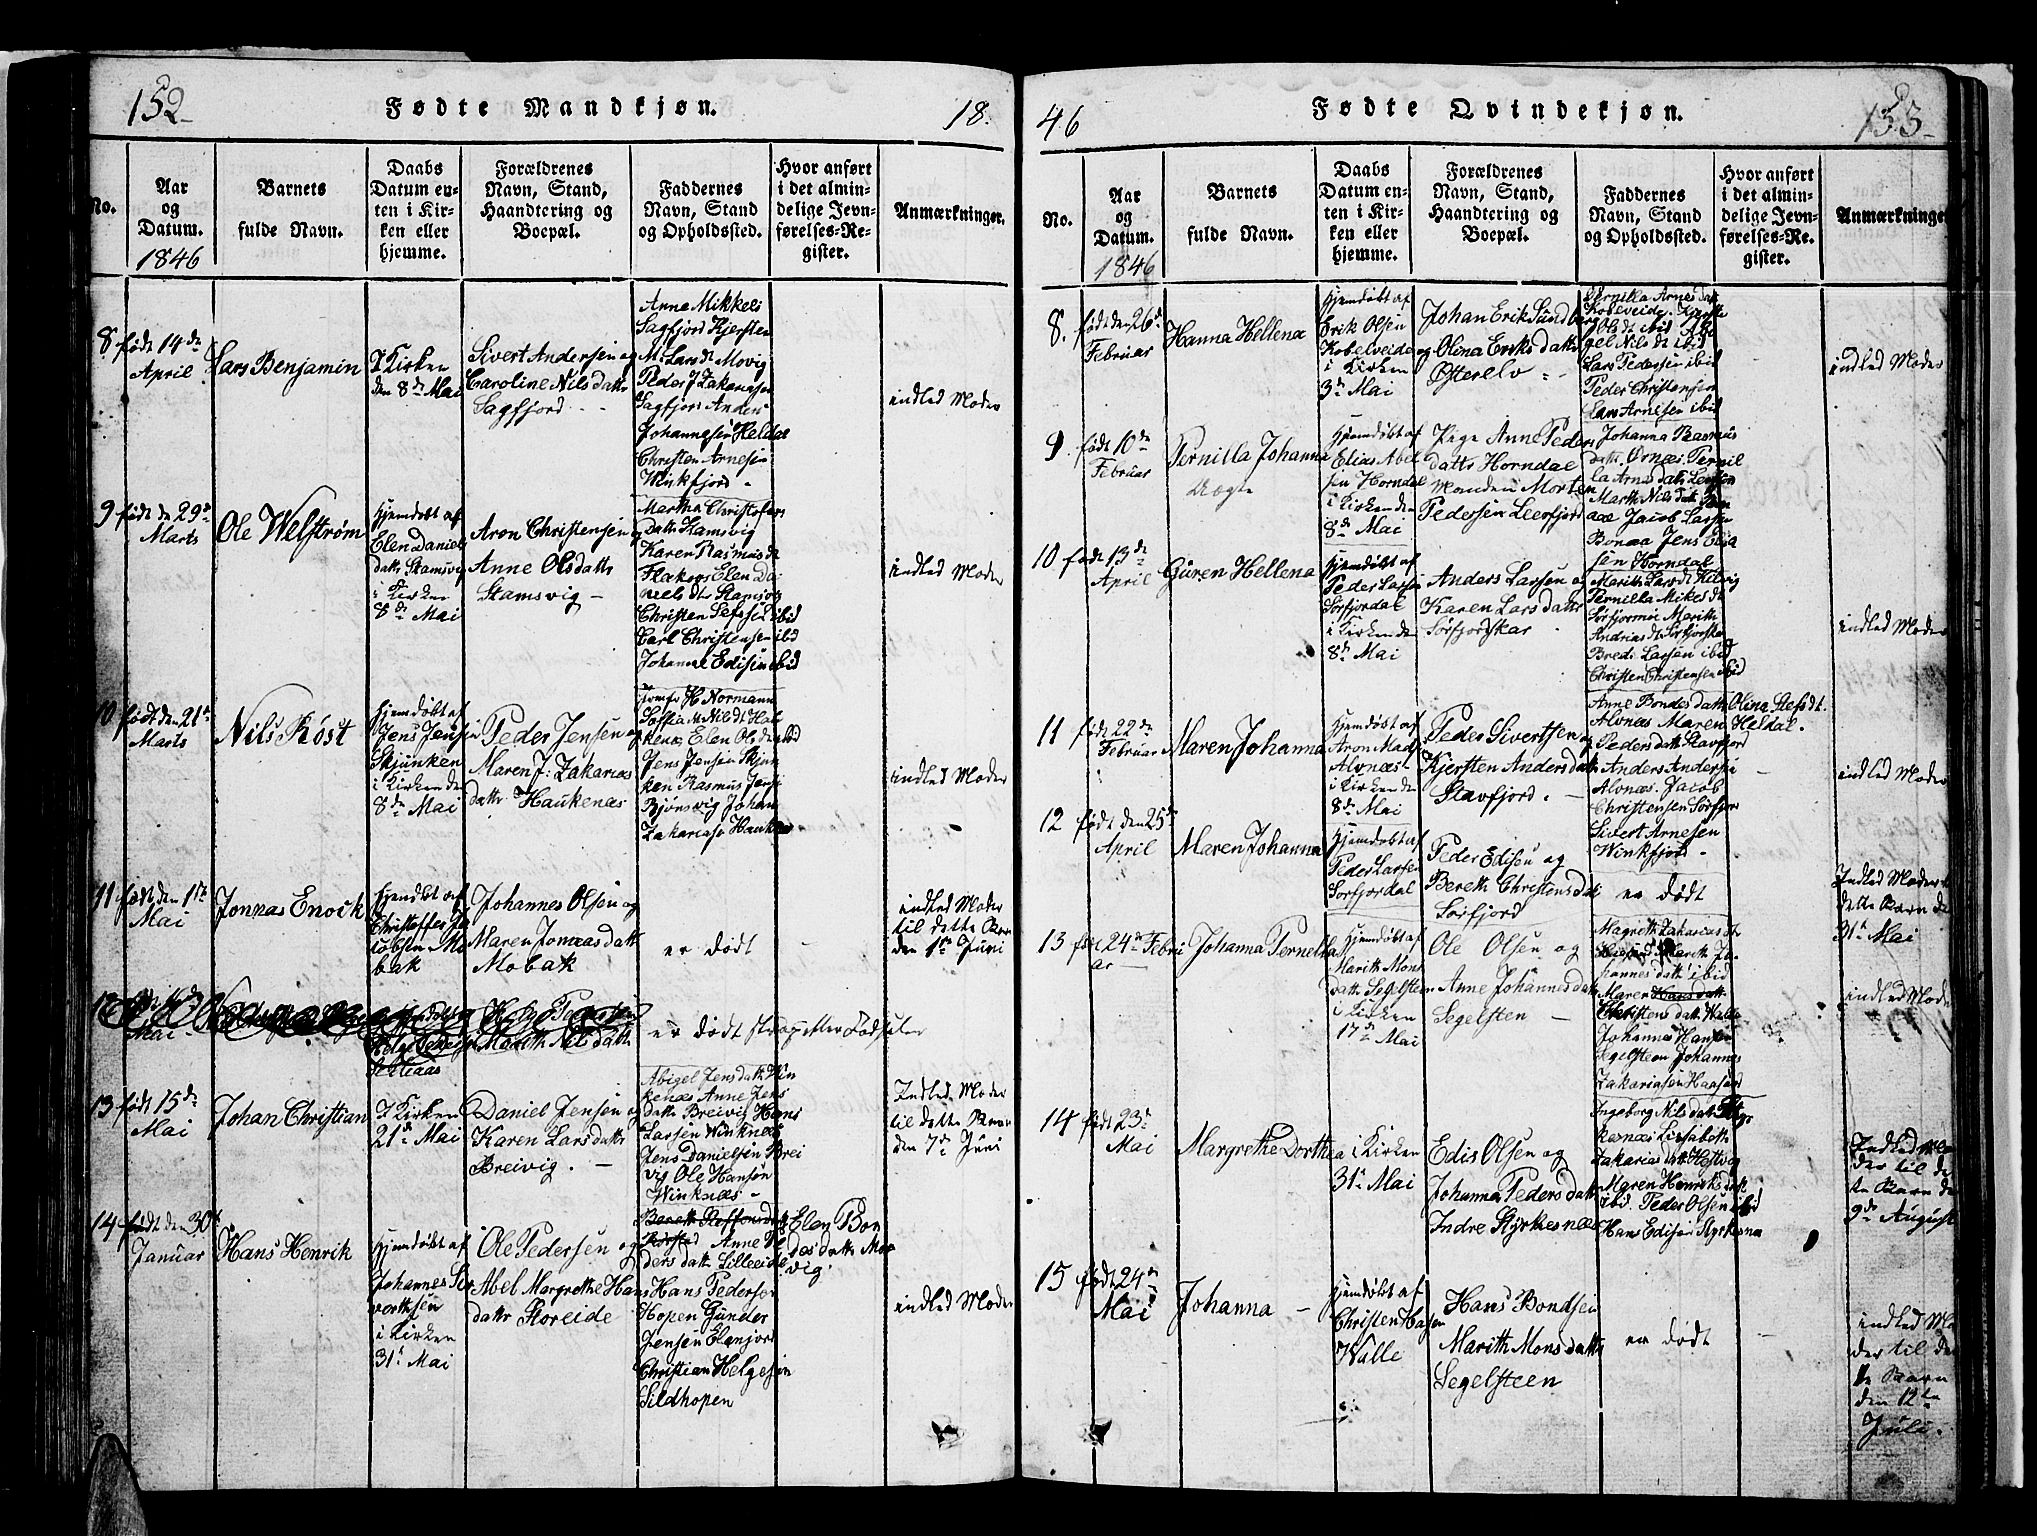 152
Fødte Mandkjøn.
18.
No.
Aar
og
Datum.
1846
Barnets
fulde Navn.
Daabs
Datum en-
ten i Kir-
ken eller
hjemme.
Forældrenes
Navn, Stand,
Haandtering og
Boepæl.
Faddernes
Navn, Stand
og Opholdssted.
Hvor anført
i det almin-
delige Jevn-
førelses-Re-
gister.
Anmærkninger.
8 født 14de
April
Lars Benjamin
I Kirken
den 8de Mai
Sivert Andersen og
Caroline Nilsdattr
Sagfjord
Anne Mikkels
Sagfjord Kjersten
M. Larsdt Movig
Peder J Zakariasen
Sagfjord Anders
Johannesen Heldal
Christen Arnesen
Winkfjord
indled Moder
9 født de 29de
Marts
Ole Welstrøm
Hjemdøbt af
Elen Daniels
dattr Stamsvig
i Kirken
8de Mai
Aron Christensen og
Anne Olsdattr
Stamsvig
Martha Christofers
dattr Stamsvig
Karen Rasmusdt
Elen Da
nielsdtr Stamsvig
Christen ibid
Carl Christensen ibid
Johanne Edisen ibid
indled Moder
10 født den 21de
Marts
Nils Røst
Hjemdøbt af
Jens Jensen
Skjunken
i Kirken den
8de Mai
Peder Jensen og
Maren J: Zakarias
dattr Haukenæs
Jomfr H Normann
Sofia M Nilsdt Hau
kenæs Elen Olsdt ibid
Jens Jensen Skjun
ken Rasmus Jensen
Bjønsvig Johan
Zakariasen Hauken
indled Moder
11 født den 1ste
Mai
Jonnas Enock
Hjemdøbt af
Christoffer Ja
cobsen Mo
bak
Johannes Olsen og
Maren Jonæsdattr
Mobak
er dødt
indled Moder
til dette Barn
den 1ste Juni
12
Mai
Helge Pedersen
Marith Nilsdattr
er dødt strax efter Fødselen
13 født 15de
Mai
Johan Christian
I Kirken
21de Mai
Daniel Jensen og
Karen Larsdattr
Breivig.
Abigel Jensdattr Win
kenæs Anne Jens
dattr Breivig Hans
Larsen Winknæs
Jens Danielsen Brei
vig Ole Hansen
Winknæs
Indled Moder
til dette Barn
den 7de Juni
14 født den 30te
Januar
Hans Henrik
Hjemdøbt af
Johannes Si
vertsen
i Kirken
31te Mai
Ole Pedersen og
Abel Margrethe Hans
dattr Storeide
Bereth Steffensdattr
Anne Pe
dersdattr Lilleeide
Hans Pedersen
Hopen Gunder
Jensen Elenjord
Christian Helgesen
Sildhopen
Elen Bon
desdattr Mor
vig.
indled Moder
46
Fødte Qvindekjøn.
153
No.
Aar
og
Datum.
1846
Barnets
fulde Navn.
Daabs
Datum en-
ten i Kir-
ken eller
hjemme.
Forældrenes
Navn, Stand,
Haandtering og
Boepæl.
Faddernes
Navn, Stand
og Opholdssted.
Hvor anført
i det almin-
delige Jevn-
førelses-Re-
gister.
Anmærkninge
8. født den 26de
Februar
Hanna Hellena
Hjemdøbt af
Erik Olsen
Kobelveide
i Kirken
3de Mai
Johan Erik Sundberg
og Olina Eriksdattr
Østerelv
Pernilla Arnesdatt
Kobelveide
Olsdt ibid Abi
gel Nilsdt ibid
Lars Pedersen ibid
Peder Christensen
Lars Arnesen ibid
indled Moder
9 født 10de
Februar
Pernilla Johanna
Uægte
Hjemdøbt af
Elias Abel
sen Horndal
i Kirken den
8de Mai
Pige Anne Peders
dattr Horndal
Manden Morten
Pedersen Leerfjord
Johanna Rasmus
datt. Ornæs. Pernil
la Arnsdattr Leerfjor
Marth Nilsdatt Bon
aae Jacob Larsen
Bonaa Jens Elia
sen Horndal
10 født 13de
April
Guren Hellena
Hjemdøbt af
Peder Larsen
Sørfjordal
i Kirken de
8de Mai
Anders Larsen og
Karen Larsdattr
Sørfjordskar
Marith Larsdt Helvig
Pernilla Mikesdt
Sørfjormo Marith
Andriasdt Sørfjorskar
Bredi Larsen ibid
Christen Christensen ibid
indled Moder
11 født 22de
Februar
Maren Johanna
Hjemdøbt af
Aron Mads
Alvnæs
i Kirken den
8de Mai
Peder Sivertsen og
Kjersten Andersdattr
Stavfjord.
Anne Bondesdattr
Alvnæs Maren
Pedersdatt Stavfjord
Anders Andersen
Alvnæs. Jacob
Christensen Sørfjor
Sivert Arnesen
Winkfjord
Olina Stefsdt.
Heldal.
indled Moder
12 født den 25de
April
Maren Johanna
Hjemdøbt af
Peder Larsen
Sørfjordal
Peder Edisen og
Bereth Christensdatt
Sørfjord
er dødt
Indled Moder til
dette Barn de
31te Mai
13 født 24de Febru
ar
Johanna Pernella
Hjemdøbt af
Marith Mons
dattr Segelsteen
i Kirken
17de Mai
Ole Olsen og
Anne Johannesdattr
Segelsten
Magreth Zakariasdt
Marith Jo
hannesdatt ibid
Maren Hansdattr
Christensdattr Walle
Johannes Hansen
Segelsteen Johannes
Zakariasen Haasand
indled Mode
14 født 23de
Mai
Margrethe Dorthea
i Kirken
31te Mai
Edis Olsen og
Johanna Pedersdattr
Indre Kjrkesnæs
Ingeborg Nilsdattr
kesnæs Lisabeth
Zakariasdattr Hestvig
Maren Henriksdatt
ibid. Peder Olsen ibid
Hans Edisen Kjrkesnæ
Indled Mo
der til de
te Barn de
9de August
15 født 24de
Mai
Johanna
Hjemdøbt af
Christen Hansen
Walle
Hans Bondsen
Marith Monsdattr
Segelsteen
er dødt
indled Mo
der til det
te Barn
den 12te
Juli.